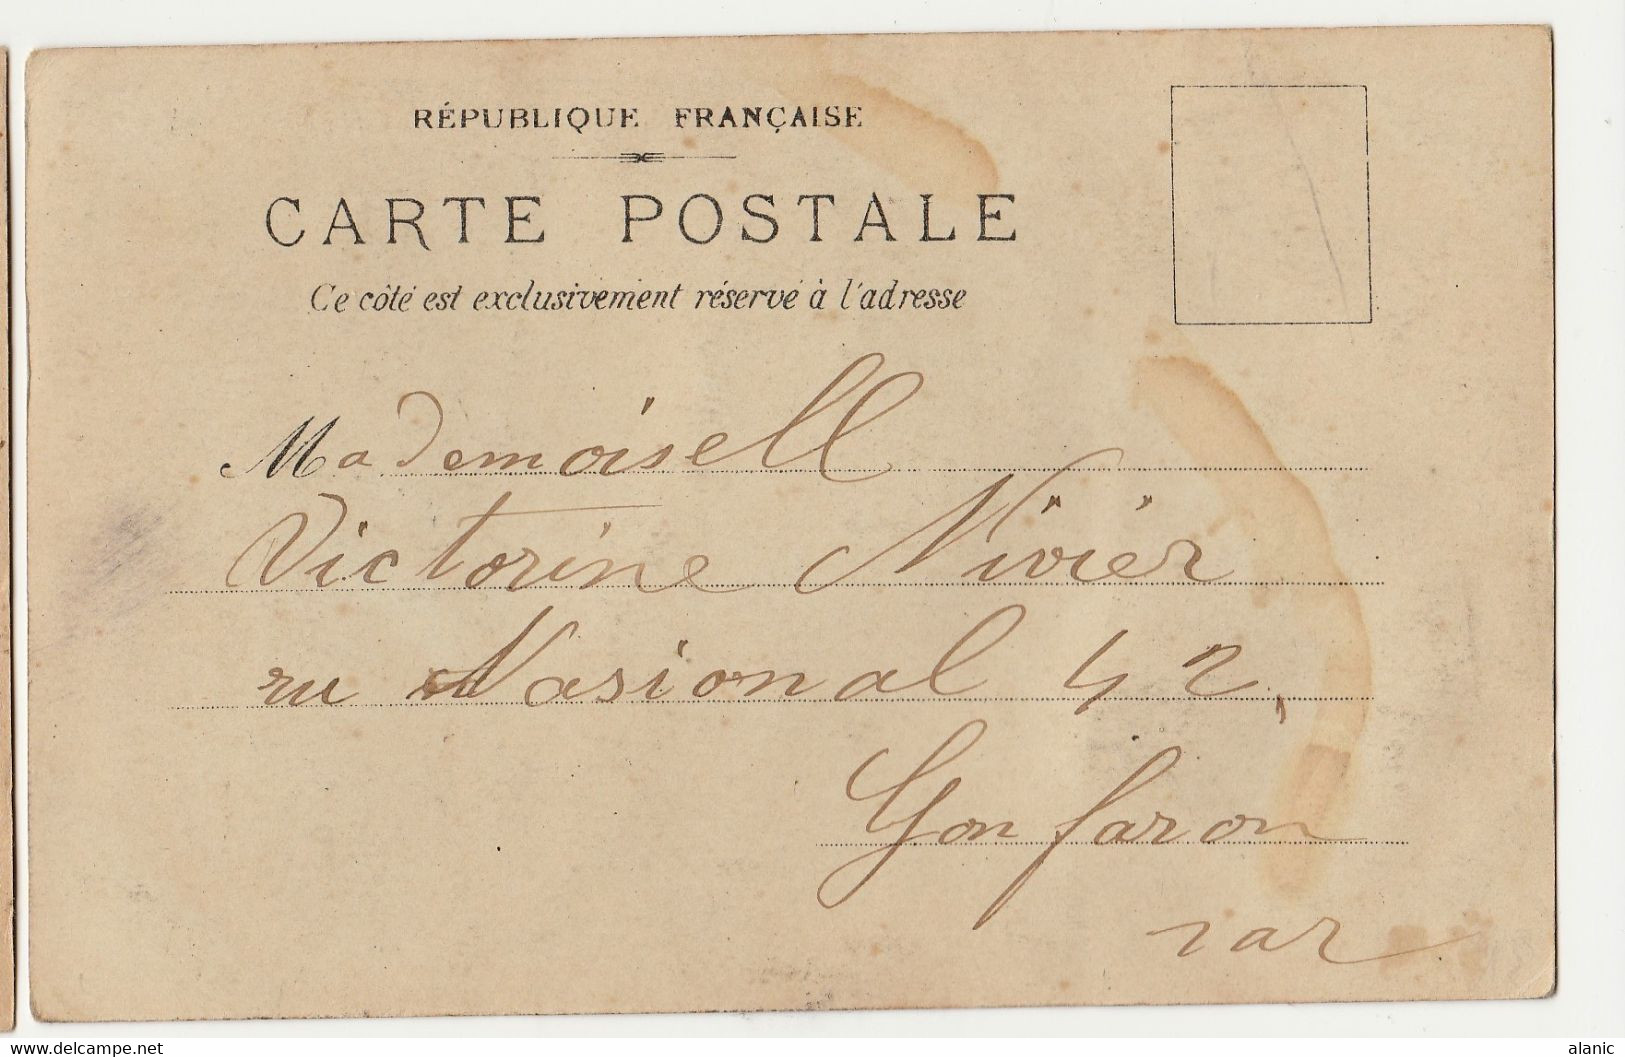 RÉPUBLIQUE FRANÇAISE
CARTE POSTALE
Ce côté est exclusivement réservé à l'adresse
Mademoisell
Victorine Nivièr
ru Nasional 42,
Gonfaron
var
www.delcampe.net
alanic